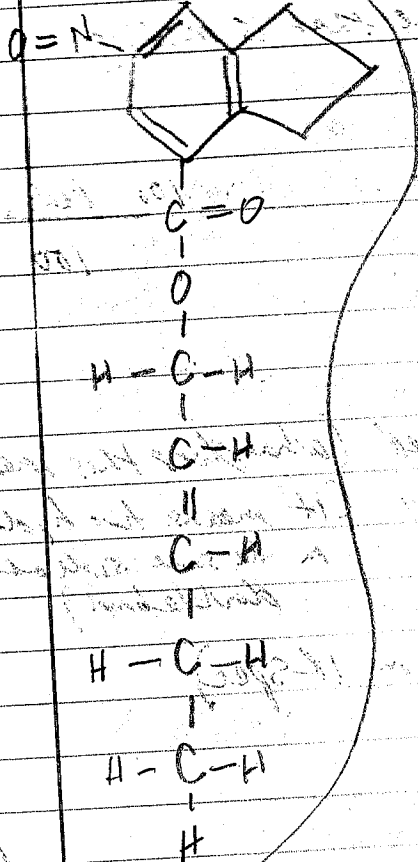 O=N
C=O
O
H-C-H
C-H
C-H
H-C-H
H-C-H
H